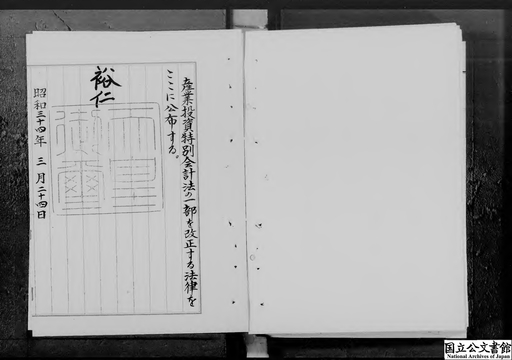 産業投資特別会計法の一部を改正する法律を
ここに公布する。
裕仁
天皇
御璽
昭和三十四年三月二十四日
国立公文書館
National Archives of Japan